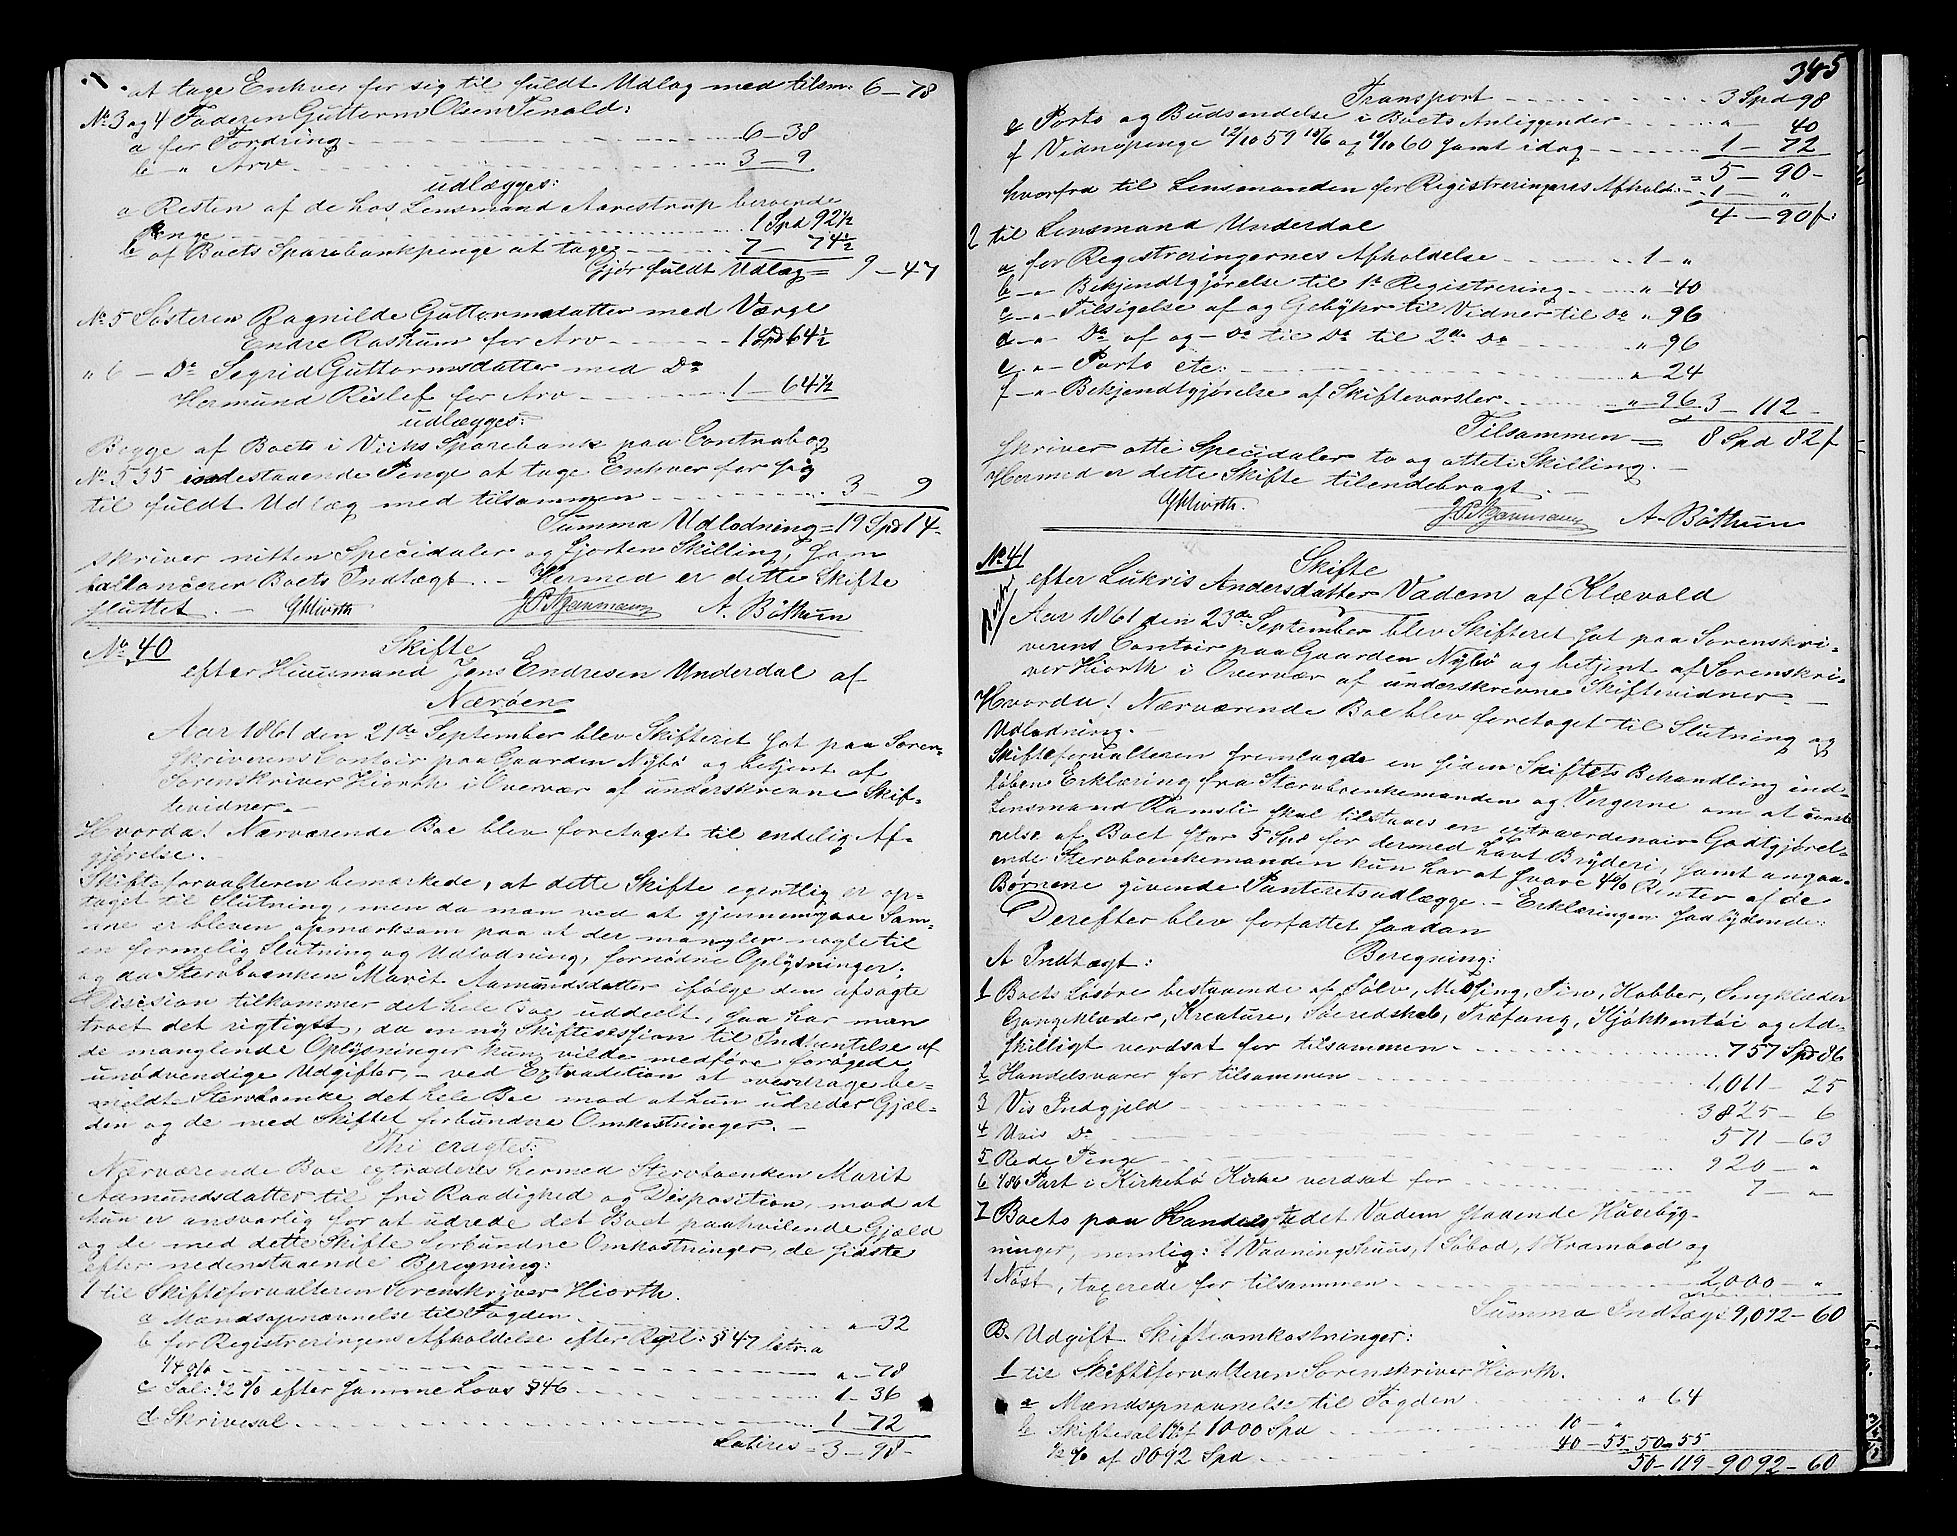 at tage Enhver for sig til fuldt Udlæg med tilsm: 6 – 78
No 3 og 4 Faderen Guttorm Olsen Tenold:
a for Fordring 6 – 38
b – " Arv 3 – 9
udlægges:
a Resten af de hos Lensmand Aarestrup beroende
Penge 1 Spd 92½
b af Boets Sparebankpenge at tage 7 – 74½
Gjør fuldt Udlæg = 9 – 47
No 5 Søsteren Ragnilde Guttormsdatter med Værge
Endre Rashum for Arv 1 Spd 64½
" 6 – Do Segrid Guttormsdatter med Do
Hermund Rislef for Arv 1 – 64½
udlægges:
Begge af Boets i Viks Sparebank paa Contrabog
No 535 indestaaende Penge at tage Enhver for sig
til fuldt Udlæg med tilsammen 3 – 9
Summa Udlodning = 19 Spd 14
skriver nitten Specidaler og fjorten Skilling, som
ballancerer Boets Indtægt. – Hermed er dette Skifte
sluttet. – GHiorth A. Bøthun
No 40 Skifte
efter Huusmand Jens Endresen Underdal af
Nærøen
Aar 1861 den 21de September blev Skifteret sat paa Soren-
skriverens Contoir paa Gaarden Nybø og betjent af
Sorenskriver Hiorth i Overvær af underskrevne Skif-
tevidner. –
Hvorda! Nærværende Boe blev foretaget til endelig Af-
gjørelse. –
Skifteforvalteren bemærkede, at dette Skifte egentlig er op-
taget til Slutning, men da man ved at gjennemgaae Sam-
me er bleven opmærksom paa at der mangler nogle til
en formelig Slutning og Udlodning, fornødne Oplysninger;
og da Stervboenken Marit Aamundsdatter ifølge den afsagte
Decision tilkommer det hele Boe uddeelt, saa har man
troet det rigtigst, da en ny Skiftesession til Indhentelse af
de manglende Oplysninger kun vilde medføre forøgede
unødvendige Udgifter, – ved Extradition at overdrage be-
meldt Stervboenke det hele Boe mod at hun udreder Gjæl-
den og de med Skiftet forbundne Omkostninger. –
Thi eragtes:
Nærværende Boe extraderes hermed Stervboenken Marit
Aamundsdatter til fri Raadighed og Disposition, mod at
hun er ansvarlig for at udrede det Boet paahvilende Gjæld
og de med dette Skifte forbundne Omkostninger, de sidste
efter nedenstaaende Beregning:
1 til Skifteforvalteren Sorenskriver Hiorth.
a Mandsopnævnelse til Fogden " – 32
b for Registreringens Afholdelse efter Rgl: § 47 litr. a
1/4 o/o " – 78
c Sal: ½ % efter samme Lovs § 46 1 – 36
d Skrivesal 1 – 72
Lateres = 3 – 98 –
345
Transport 3 Spd 98
e Porto og Budsendelse i Boets Anliggender " – 40
f Vidnepenge 12/10 59 15/6 og 10/10 60 samt idag 1 – 72
= 5 – 90 –
hvorfra til Lensmanden for Registreringernes Afhold: 1 – "
4 – 90 f:
2 til Lensmand Underdal
a for Registreringernes Afholdelse 1 – "
b – " Bekjendtgjørelse til 1e Registrering " – 40
c – " Tilsigelse af og Gebyhr til Vidner til Do " – 96
d – " Do af og – Do til Do til 2de Do " – 96
e – " Porto etc: " – 24
f – " Bekjendtgjørelse af Skiftevarsler " – 96 3 – 112
Tilsammen = 8 Spd 82 f
skriver otte Specidaler to og otteti Skilling. –
Hermed er dette Skifte tilendebragt. –
GHiorth. A. Bøthun
No 41 Skifte
efter Lukris Andersdatter Vadem af Klævold
Aar 1861 den 23de September blev Skifteret sat paa Sorenskri-
verens Contoir paa Gaarden Nybø og betjent af Sorenskri-
ver Hiorth i Overvær af underskrevne Skiftevidner. –
Hvorda! Nærværende Boe blev foretaget til Slutning og
Udlodning. –
Skifteforvalteren fremlagde en siden Skiftets Behandling ind-
løben Erklæring fra Stervboenkemanden og Vergerne om at
Lensmand Ramsli skal tilstaaes en extraordenair Godtgjørel-
nelse af Boet stor 5 Spd for dermed havt Bryderi, samt angaa-
ende Stervboenkemanden kun har at svare 4 % Renter af de
Børnene givende Panteretsudlægge. – Erklæringen saalydende:
Derefter blev forfattet saadan
Beregning:
A Indtægt:
1 Boets Løsøre bestaaende af Sølv, Messing, Tin, Kobber, Sengklæder
Gangklæder, Kreature, Søeredskab, Træfang, Kjøkkentøi og Ad-
skilligt verdsat for tilsammen 757 Spd 86
2 Handelsvarer for tilsammen 1,011 – 25
3 Vis Indgjeld 3825 – 6
4 Uvis Do 571 – 63
5 Rede Penge 920 – "
6 1/86 Part i Kirkebø Kirke verdsat for 7 – "
7 Boets paa Handelsstedet Vadem staaende Huusbyg-
ninger, nemlig: 1 Vaaningshuus, 1 Søbod, 1 Krambod og
1 Nøst, taxerede for tilsammen 2,000 – "
Summa Indtægt 9,092 – 60
B. Udgift Skifteomkostninger:
1 til Skifteforvalteren Sorenskriver Hiorth.
a Mandsopnævnelse til Fogden " 64
b Skiftesal 1 % af 1000 Spd 10 – "
½ % af 8092 Spd 40 – 55 50 " 55
50 – 119 – 9092 – 60